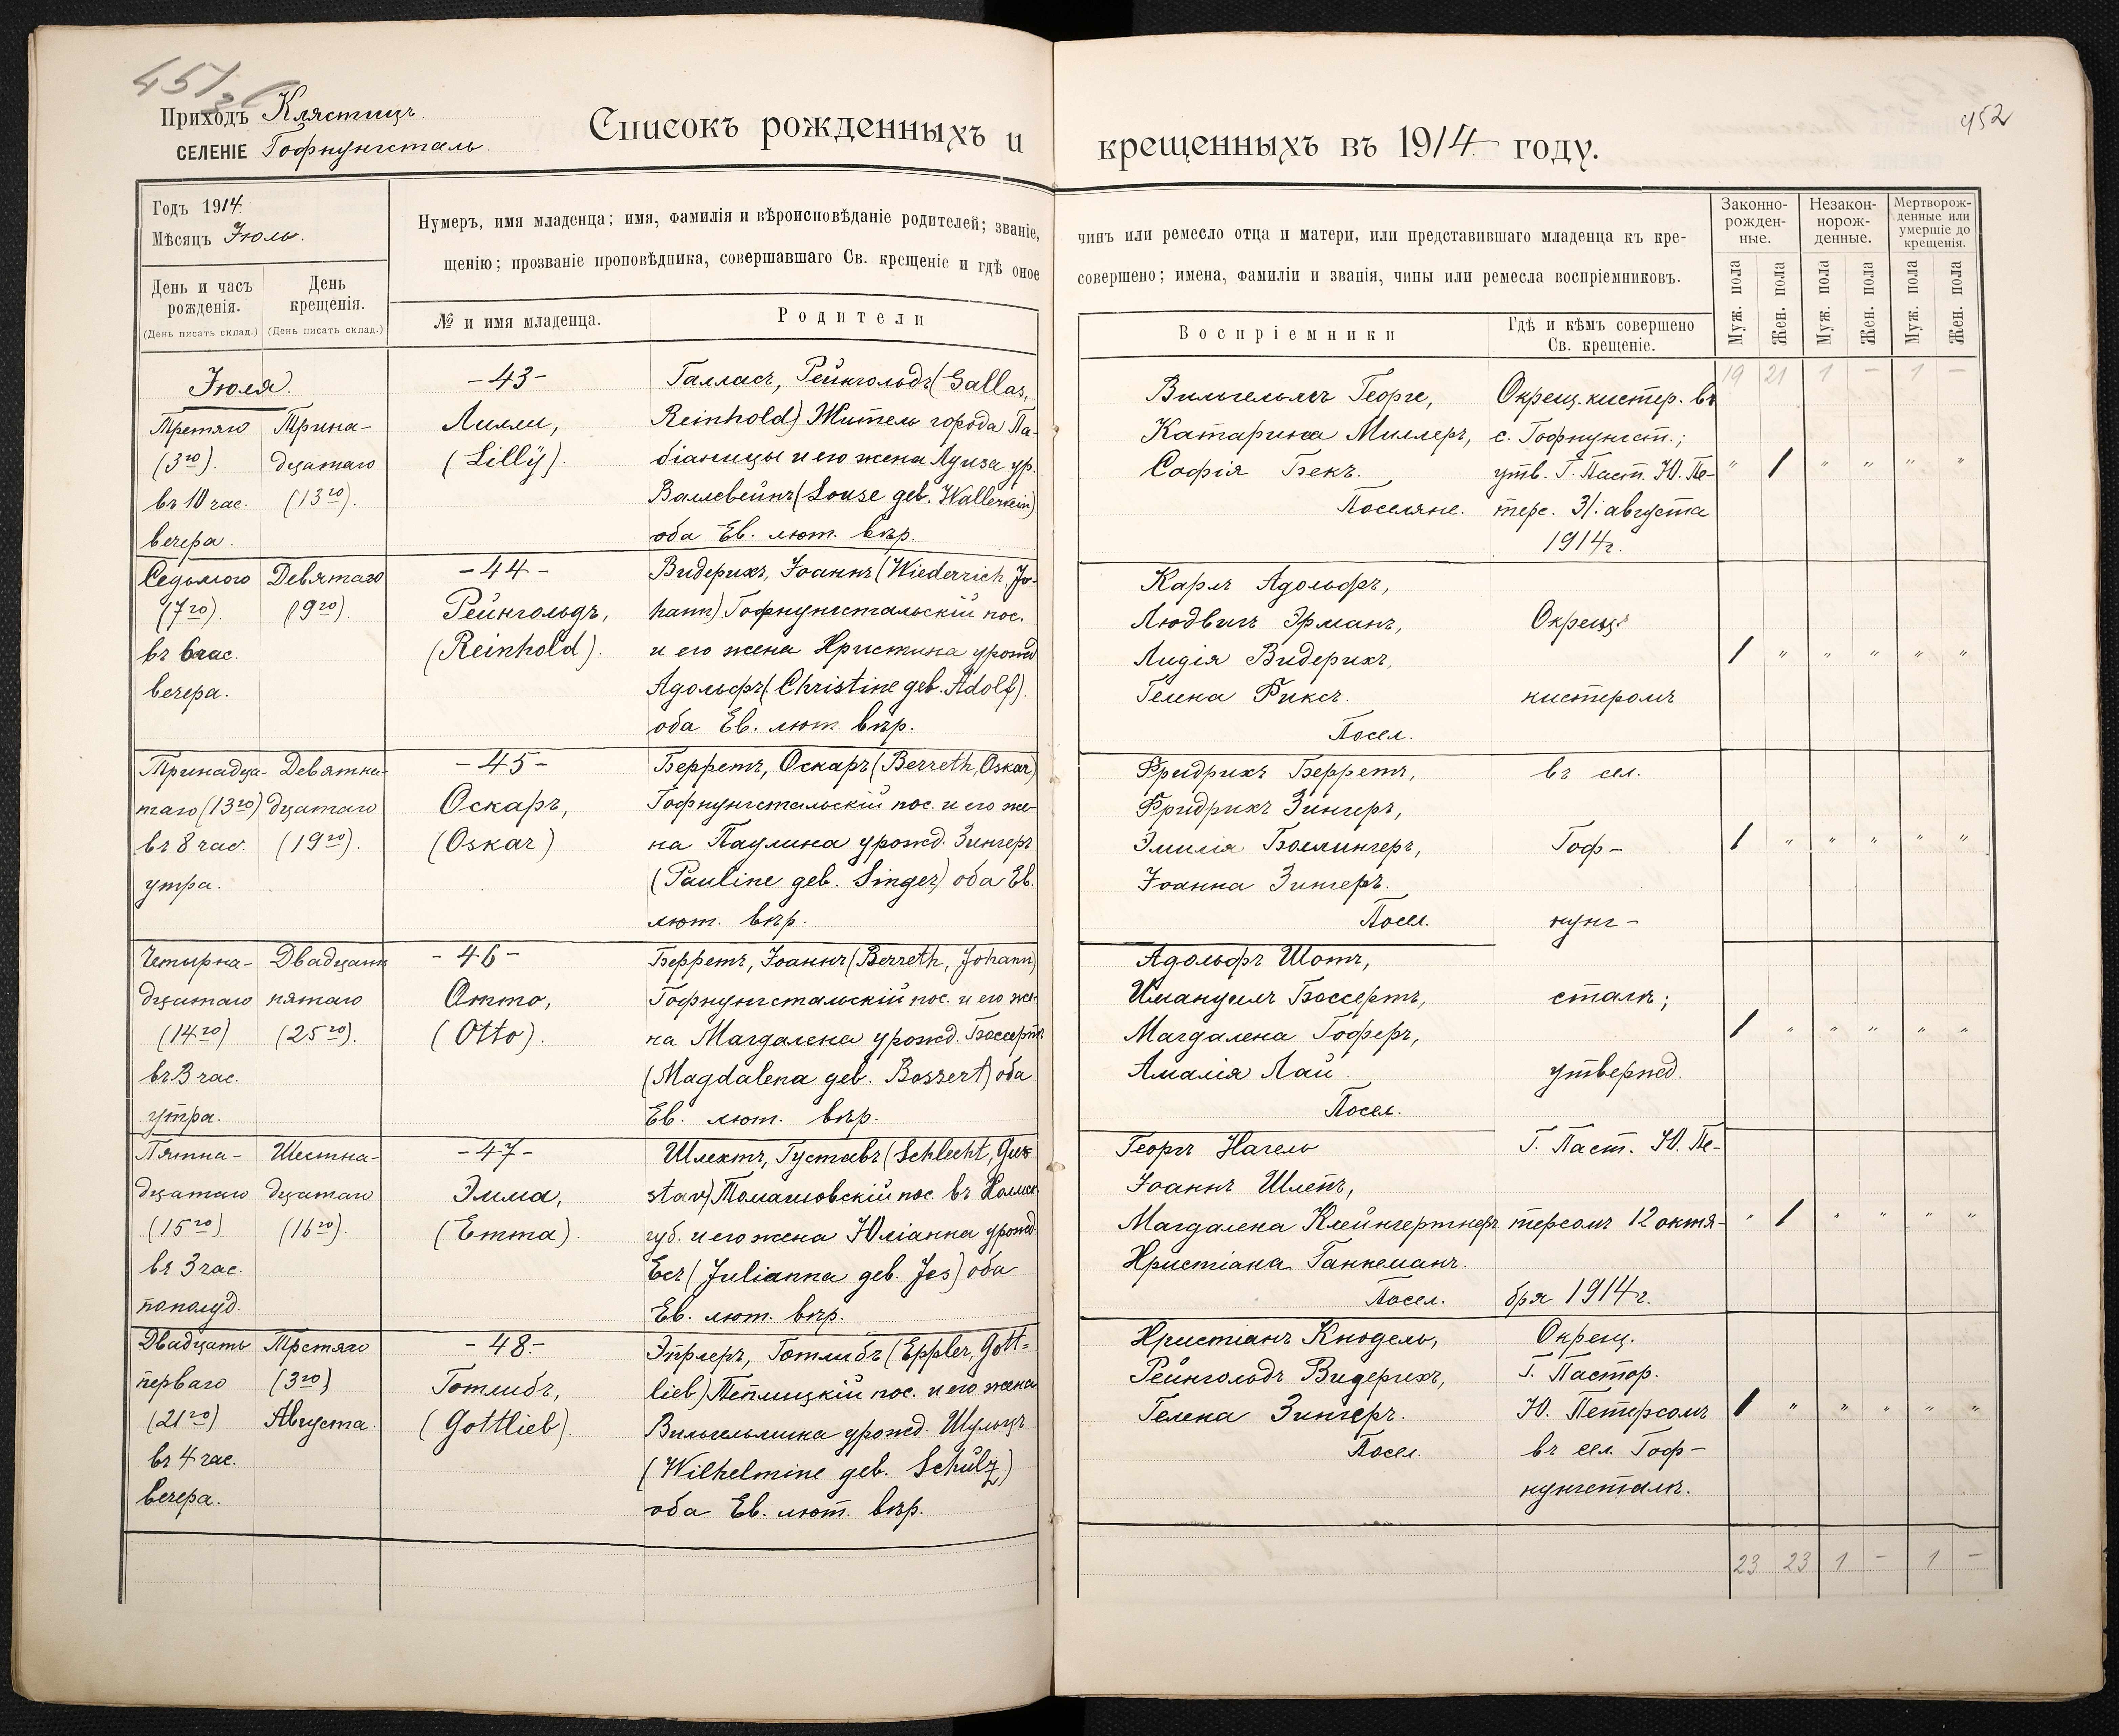 451
Приходъ Клястицъ.
СЕЛЕНІЕ Гофнунгсталь.
Списокъ рожденныхъ и
Годъ 1914.
Мѣсяцъ Іюль.
Нумеръ, имя младенца; имя, фамилія и вѣроисповѣданіе родителей; званіе,
щенію; прозваніе проповѣдника, совершавшаго Св. крещеніе и гдѣ оное
День и часъ рожденія.
(День писать склад.)
День крещенія.
(День писать склад.)
№ и имя младенца.
Родители
Іюля.
Третяго
(3го).
въ 10 час.
вечера.
Трина-
дцатаго
(13го).
-43-
Лилли,
(Lillÿ).
Галласъ, Рейнгольдъ (Gallas,
Reinhold) Житель города Па-
біаницы и его жена Луиза ур.
Валлевейнъ (Louse geb. Wallewein)
оба Ев. лют. вѣр.
Седьмого
(7го).
въ 6 час.
вечера.
Девятаго
(9го).
-44-
Рейнгольдъ,
(Reinhold).
Видерихъ, Іоаннъ (Wiederrich, Jo-
hann) Гофнунгстальскій пос.
и его жена Христина урожд
Адольфъ (Christine geb. Adolf).
оба Ев. лют. вѣр.
Тринадца-
таго (13го)
въ 8 час.
утра.
Девятна-
дцатаго
(19го).
-45-
Оскаръ,
(Oskar)
Берретъ, Оскаръ (Berreth, Oskar)
Гофнунгстальскій пос. и его же-
на Паулина урожд. Зингеръ
(Pauline geb. Singer) оба Ев.
лют. вѣр.
Четырна-
дцатаго
(14го)
въ 3 час.
утра.
Двадцать
пятаго
(25го).
-46-
Отто,
(Otto).
Берретъ, Іоаннъ (Berreth, Johann)
Гофнунгстальскій пос. и его же-
на Магдалена урожд. Боссертъ
(Magdalena geb. Bossert) оба
Ев. лют. вѣр.
Пятна-
дцатаго
(15го)
въ 3 час.
пополуд.
Шестна-
дцатаго
(16го).
-47-
Эмма,
(Emma).
Шлехтъ, Густавъ (Schlecht, Gus-
stav) Томашовскій пос. въ Холмск
губ. и его жена Юліанна урожд.
Есъ (Julianna geb. Jes) оба
Ев. лют. вѣр.
Двадцать
перваго
(21го)
въ 4 час.
вечера.
Третяго
(3го)
Августа.
-48-
Готлибъ,
(Gottlieb).
Эпплеръ, Готлибъ (Eppler, Gott=
lieb) Теплицкій пос. и его жена
Вильгельмина урожд. Шульцъ
(Wilhelmine geb. Schulz)
оба Ев. лют. вѣр.
452
крещенныхъ въ 1914 году.
чинъ или ремесло отца и матери, или представившаго младенца къ кре-
совершено; имена, фамиліи и званія, чины или ремесла воспріемниковъ.
Воспріемники
Гдѣ и кѣмъ совершено Св. крещеніе.
Законно-рожден-ные.
Незакон-норож-денные.
Мертворож-денные или умершіе до крещенія.
Муж. пола
Жен. пола
Муж. пола
Жен. пола
Муж. пола
Жен. пола
19 21 1 - 1 -
Вильгельмъ Георге,
Катарина Миллеръ,
Софія Бекъ.
Поселяне.
Окрещ. кистер. въ
с. Гофнунгст.;
утв. Г. Паст. Ю. Пе-
терс. 31. августа
1914г.
" 1 " " " "
Карлъ Адольфъ,
Людвигъ Эрманъ,
Лидія Видерихъ,
Гелена Фиксъ.
Посел.
Окрещ.
кистеромъ
1 " " " " "
Фридрихъ Берретъ,
Фридрихъ Зингеръ,
Эмилія Боллингеръ,
Іоанна Зингеръ.
Посел.
въ сел.
Гоф-
нунг-
1 " " " " "
Адольфъ Шотъ,
Имануилъ Боссертъ,
Магдалена Гоферъ,
Амалія Лай.
Посел.
сталѣ;
утвержд.
1 " " " " "
Георгъ Нагель
Іоаннъ Шлепъ,
Магдалена Клейнгертнеръ
Христіана Ганнеманъ.
Посел.
Г. Паст. Ю. Пе-
терсомъ 12 октя-
бря 1914г.
" 1 " " " "
Христіанъ Кнодель,
Рейнгольдъ Видерихъ,
Гелена Зингеръ.
Посел.
Окрещ.
Г. Пастор.
Ю. Петерсомъ
въ сел. Гоф-
нунгсталѣ.
1 " " " " "
23 23 1 - 1 -